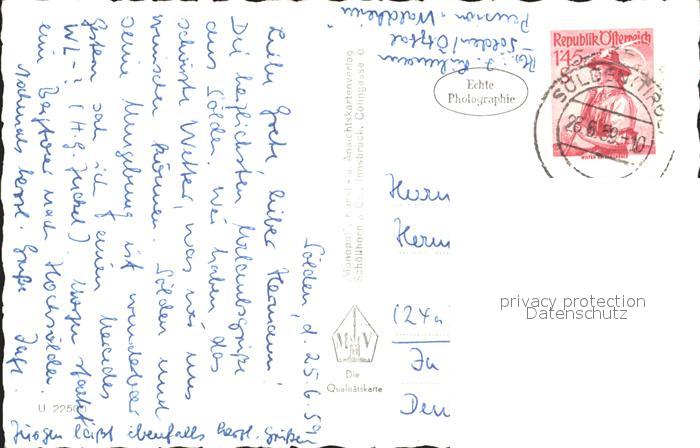 Sölden, d. 25.6.59
Liebe Grete, lieber Hermann!
Die herzlichsten Urlaubsgrüße
aus Sölden. Wir haben das
schönste Wetter, was wir uns
wünschen können. Sölden und
seine Umgebung ist wunderbar.
Gestern sah ich einen Mercedes
WL-? (H.G. ). Morgen startet
eine Bergtour nach Hochsölden.
Nochmals herzl. Grüße
Jürgen läßt ebenfalls herzl. grüßen
U 22500
Monopol", Kunst- u. Ansichtskartenverlag
Schöllhorn & Co., Innsbruck, Colingasse
MV
Die
Qualitätskarte
Echte
Photographie
Sölden/Ötztal
Pension "Waldheim"
Republik Österreich
1'45
SÖLDEN/TIROL
26.6.59-10
Herrn
Herm
(24a)
Den
privacy protection
Datenschutz